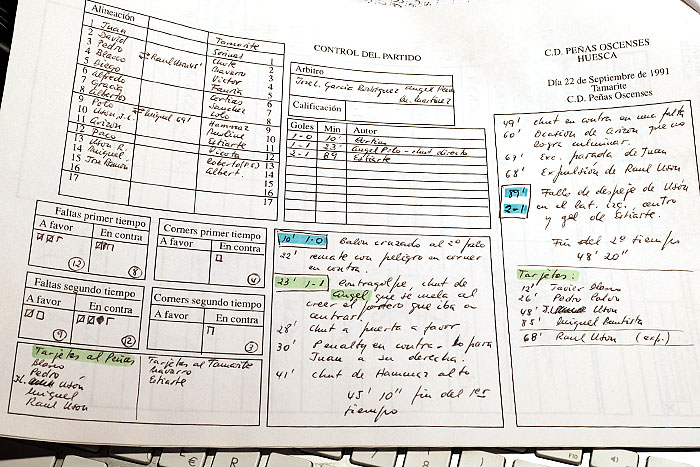 Alineación
1 Juan
2 David
3 Pedro
4 Blasco
5 Diego
6 Alfredo
7 Gracia
8 Alberto
9 Polo
10 Usón J.L.
11 Arizón
12 Paco
13 Usón R.
14 Miguel
15 José Ramón
16
17
Raul Usón
Miguel 64'
Tamarite
1
Chute 2
Navarro 3
Victor 4
5
6
Sanchez 7
8
Hammez 9
10
Estiarte 11
12
Roberto (P.S.) 13
Albert. 14
15
16
17
CONTROL DEL PARTIDO
Arbitro
José L. García Rodríguez Angel
Calificación
Goles Min Autor
1-0 10'
1-1 23' Angel Polo - chut directo
2-1 89 Estiarte
Faltas primer tiempo
A favor En contra
12 8
Corners primer tiempo
A favor En contra
4
Faltas segundo tiempo
A favor En contra
9 12
Corners segundo tiempo
A favor En contra
3
Tarjetas al Peñas
Blasco
Pedro
JL. Usón
Miguel
Raul Usón
Tarjetas al Tamarite
Navarro
Estiarte
10' 1-0 Balon cruzado al 2º palo
22' remate con peligro en corner
en contra.
23' 1-1 contragolpe, chut de
Angel que se cuela al
creer el portero que iba a
centrar.
28' chut a puerta a favor
30' Penalty en contra - lo para
Juan a su derecha.
41' chut de Hammez alto
45' 10" fin del 1er
tiempo
C.D. PEÑAS OSCENSES
HUESCA
Día 22 de Septiembre de 1991
Tamarite
C.D. Peñas Oscenses
49' chut en contra en una falta
60' Ocasion de Arizon que no
logra culminar.
67' Exc. parada de Juan
68' Expulsion de Raul Usón
89' Fallo de despeje de Usón
2-1 en el lat. izq., centro
y gol de Estiarte.
Fin del 2º tiempo
48' 20"
Tarjetas:
12' Javier Blasco
26' Pedro Calvo
48' J.L. Usón
85' Miguel Bautista
68' Raul Usón (exp.)